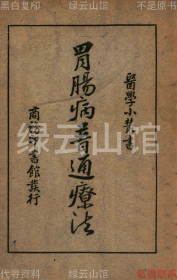 醫學小叢書
胃腸病普通療法
商務印書館發行
黑白复印
绿云山馆
不是原书
绿云山馆
代寻资料